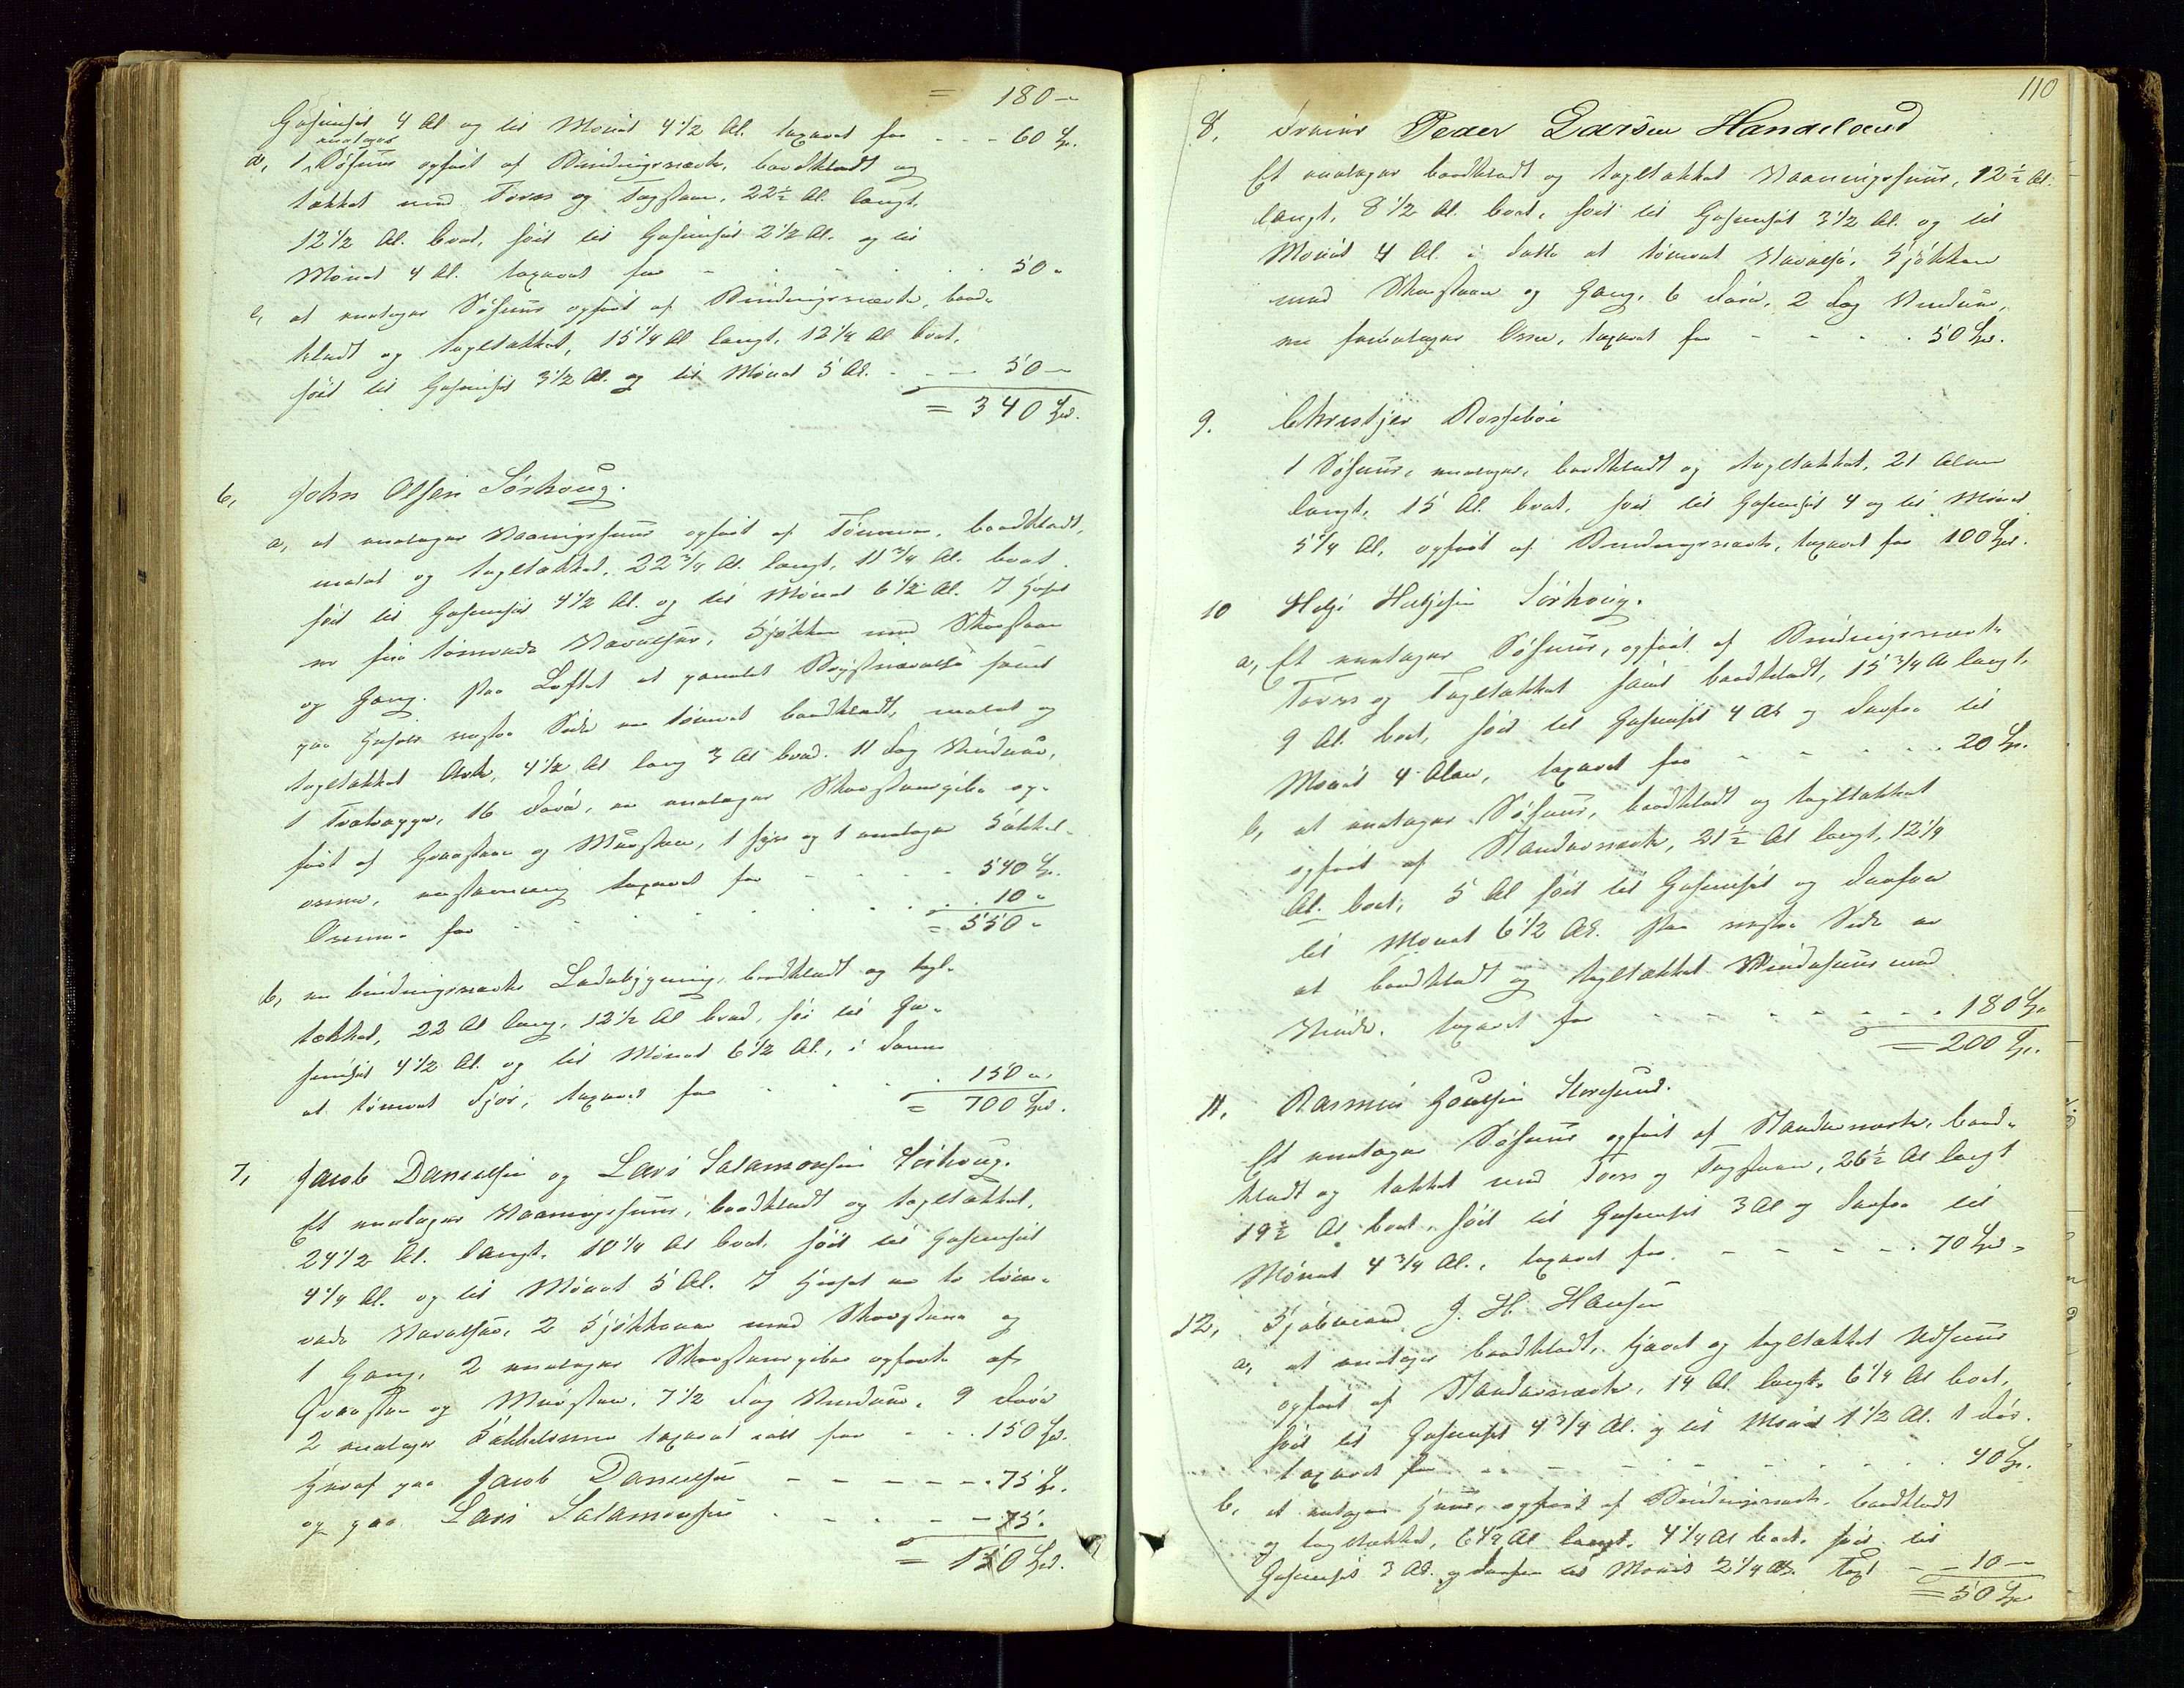 = 180 –
Gesimsit 4 Al og til Mønet 4 1/2 Al. taxeret for - - - 60 Spd.
d, 1 eenetages Søhuus opført af Bindingsværk, bordklædt og
tækket med Torv og Tagsteen, 22½ Al. langt,
12 1/2 Al. bred, høit til Gesimsit 2 1/2 Al. og til
Mønet 4 Al. taxeret for - . . . . 50 "
e, et eenetages Søhuus opført af Bindingsværk, bord-
klædt og tagltækket, 15 1/4 Al langt, 12 1/4 Al bret,
høit til Gesimsit 3 1/2 Al. og til Mønet 5 Al. - - - 50 –
= 340 Spd.
6, John Olsen Sørhoug.
a, et eenetages Vaaningshuus opført af Tømmer, bordklædt,
malet og tagltækket, 22 3/4 Al. langt, 11 3/4 Al. bret.
høit til Gesimsit 4 1/2 Al. og til Mønet 6 1/2 Al. I Huset
er fire tømrede Værelser, Kjøkken med Skorsteen
og Gang. Paa Loftet et panelet Qvistværelse samt
paa Husets vestre Side en tømret bordklædt, malet og
tagltækket Ark, 4 1/2 Al lang 3 Al bred. 11 Fag Vinduer,
1 Trætrappe, 16 Døre, en eenetages Skorsteenspibe op-
ført af Graasteen og Muursteen, 1 Hyre og 1 eenetages Kakkel-
ovne, Bygning taxeret for - - - - - 540 Sp.
Ovnene for - . . . . . . 10 "
= 550 "
b, en bindingsværks Ladebygning, bordklædt og tagl-
tækket, 22 Al lang, 12 1/2 Al bred, høi til Ge-
simsit 4 1/2 Al. og til Mønet 6 1/2 Al., i denne
et tømret Fjøs, taxeret for . . . . 150 "
= 700 Spd.
7, Jacob Danielsen og Lars Salamonsen Sørhoug.
Et eenetages Vaaningshuus, bordklædt og tagltækket,
24 1/2 Al. langt, 10 1/4 Al bret, høit til Gesimsit
4 1/4 Al. og til Mønet 5 Al. I Huset er to tøm-
rede Værelser, 2 Kjøkkener med Skorstene og
1 Gang, 2 eenetages Skorsteenspiber opførte af
Graasteen og Muursteen, 7 1/2 Fag Vinduer, 9 Døre
2 eenetages Kakkelovne taxeret alt for - - . 150 Spd.
Heraf paa Jacob Danielsen - - - - - - . 75 Sp.
og paa Lars Salamonsen . - . . - - 75 "
= 150 Spd.
110
8, Træner Peder Larsen Handeland
Et eenetages bordklædt og tagltækket Vaaningshuus, 12 ½ Al.
langt, 8 1/2 Al. bret, høit til Gesimsit 3 1/2 Al. og til
Mønet 4 Al. i dette et tømret Værelse, Kjøkken
med Skorsteen og Gang, 6 Døre, 2 Fag Vinduer,
en treetages Ovn, taxeret for - - . . . 50 Spd.
9. Christjer Rossebøe
1 Søhuus, eenetages, bordklædt og tagltækket, 21 Alen
langt, 15 Al. bret, høit til Gesimsit 4 og til Mønet
5 1/4 Al, opført af Bindingsværk, taxeret for 100 Spd.
10 Helje Heljesen Sørhoug.
a, Et eenetages Søhuus, opført af Bindingsværk
Torv og Tagltækket samt bordklædt, 15 3/4 Al langt,
9 Al. bret, høit til Gesimsit 4 Al og derfra til
Mønet 4 Alen, taxeret for - - - - . . 20 Sp.
b, et eenetages Søhuus, bordklædt og tagltækket
opført af Standerværk, 21 ½ Al langt, 12 1/4
Al. bret, 5 Al høit til Gesimsit og derfra
til Mønet 6 1/2 Al. Paa vestre Side er
et bordklædt og tagltækket Vindehuus med
Vinde. taxeret for - - - - - - . 180 Sp.
= 200 Sp.
11. Rasmus Goulsen Storesund.
Et eenetages Søhuus opført af Standerværk, bord-
klædt og tækket med Torv og Tagsteen, 26 ½ Al langt
19 ½ Al bret, høit til Gesimsit 3 Al og derfra til
Mønet 4 3/4 Al., taxeret for - - - - . 70 Spd.
12, Kjøbmand J. H. Hansen
a, et eenetages bordklædt, tjæret og tagltækket Udhuus
opført af Standerværk, 14 Al. langt, 6 1/4 Al bret,
høit til Gesimsit 4 3/4 Al. og til Mønet 1 1/2 Al. 1 Dør.
taxeret for - - - . - . . . . 40 Sp.
b, et eetages Huus, opført af Bindingsværk. bordklædt
og tagltækket, 6 1/4 Al langt, 4 1/4 Al bret. høit til
Gesimsit 3 Al. og derfra til Mønet 2 1/4 Al. Taxt - - 10 –
= 50 Spd